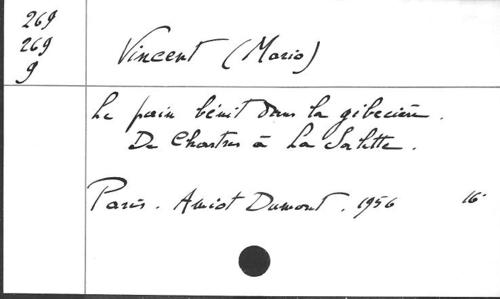 269
269
9
Vincent (Mario)
Le pain bénit dans la gibecière.
De Chartres à La Salette.
Paris. Amiot Dumont. 1956 16°